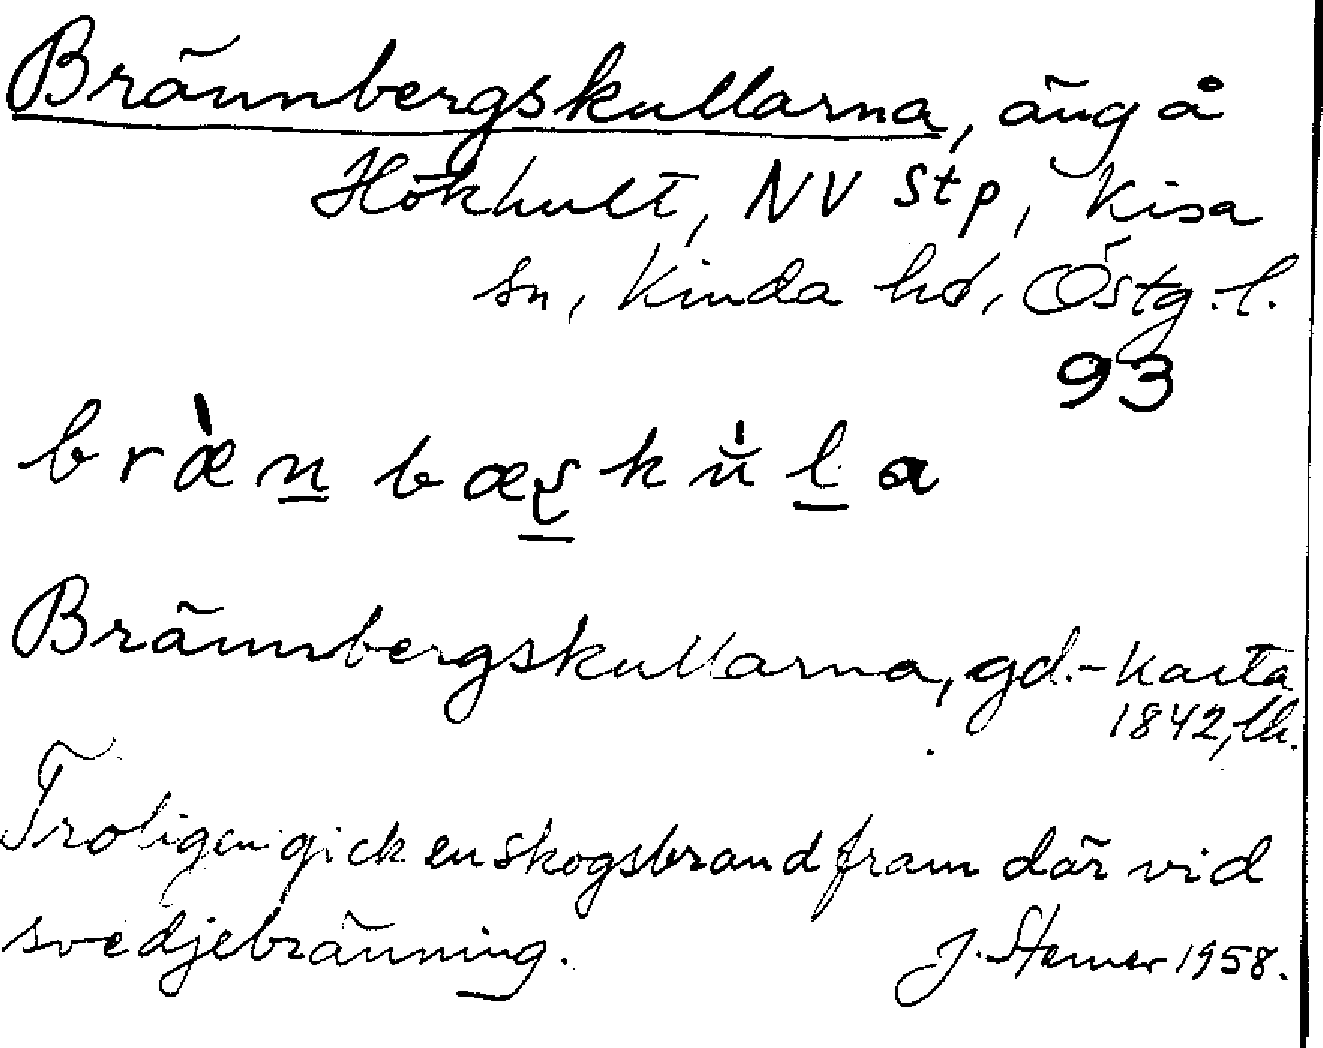 Brännbergskullarna, äng å
Hökhult, NV Stp, Kisa
sn, Kinda hd, Östg. l.
93
Brännbergskullarna, gd.-karta
1842, lh.
Troligen gick en skogsbrand fram där vid
svedjebränning. J. Sterner 1958.